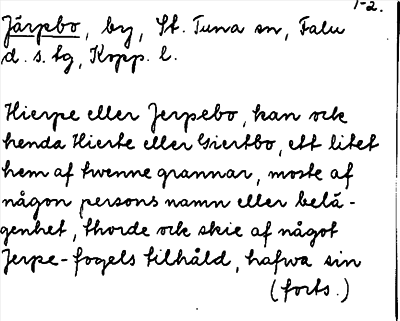 1-2.
Järpebo, by, St. Tuna sn, Falu
d. s. tg, Kopp. l.
Hierpe eller Jerpebo, kan ock
henda Hierte eller Giertbo, ett litet
hem af twenne grannar, moste af
någon persons namn eller belä-
genhet, thorde ock skie af något
Jerpe-fogels tilhåld, hafwa sin
(forts.)